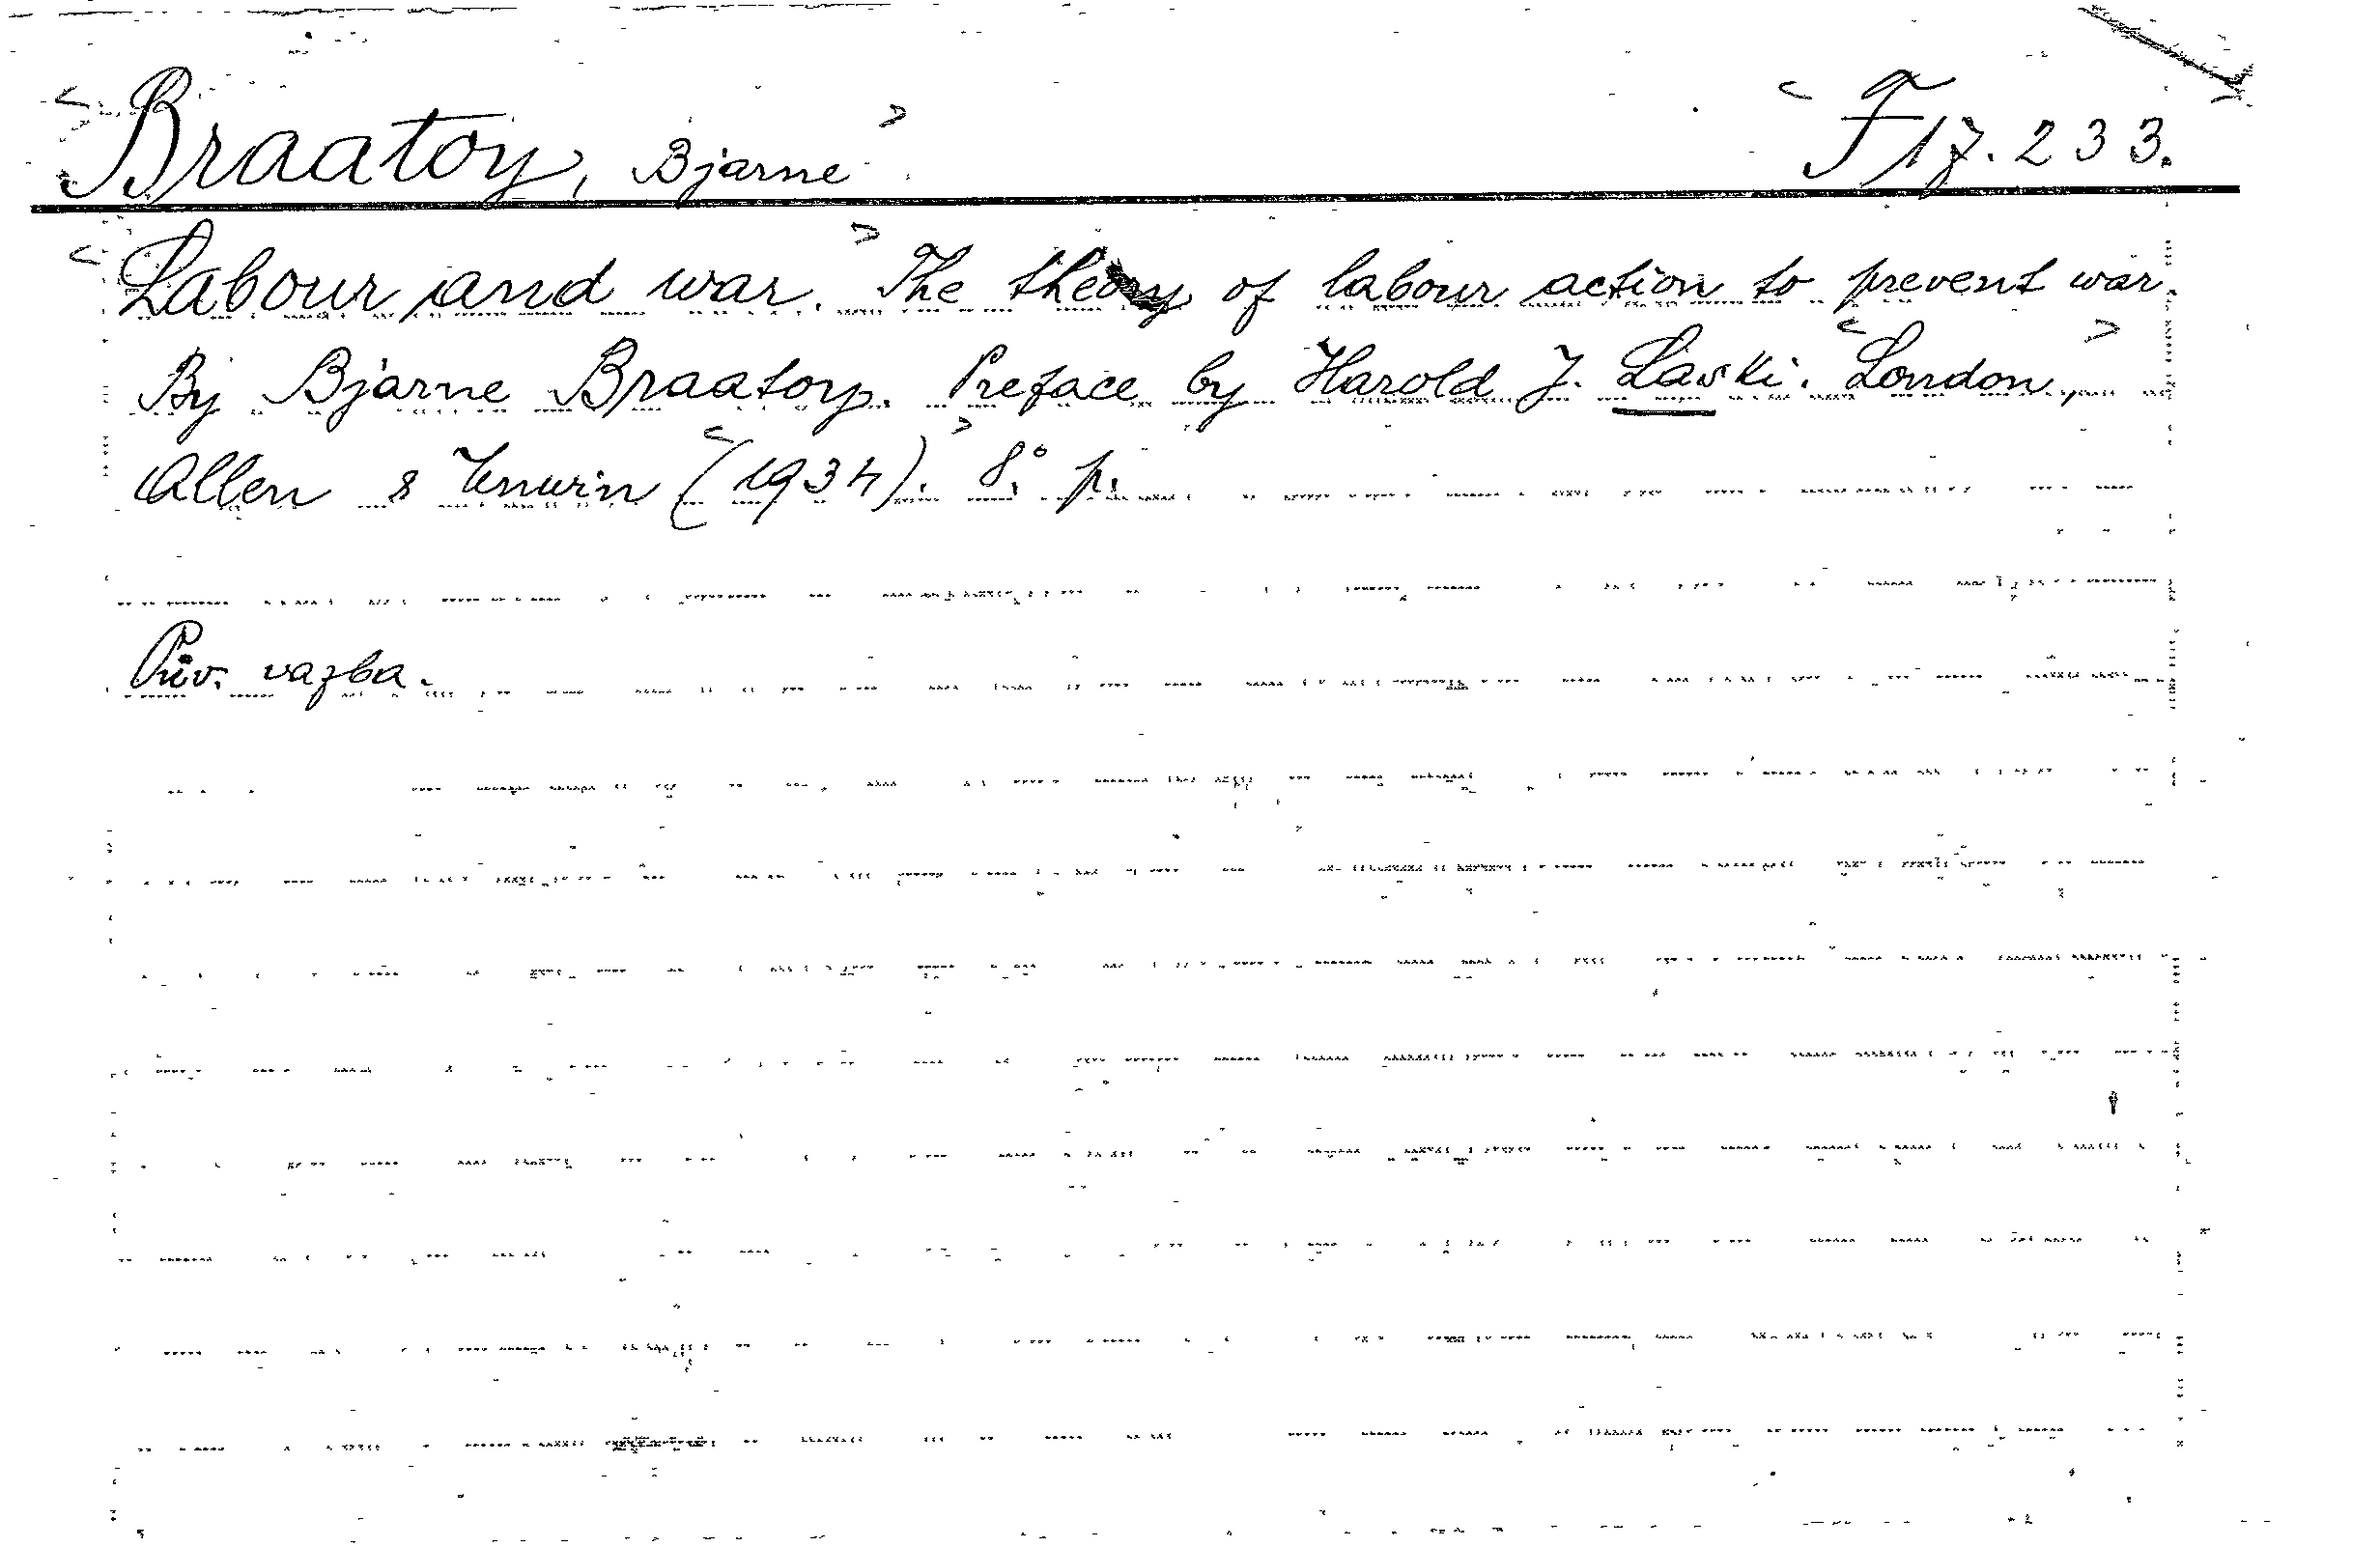 <Braatoy, Bjarne> <F 17.233.
<Labour and war.> The theory of labour action to prevent war.
By Bjarne Braatoy. Preface by Harold J. Laski. <London,>
Allen & Unwin <(1934).> 8°. p.
Pův. vazba.